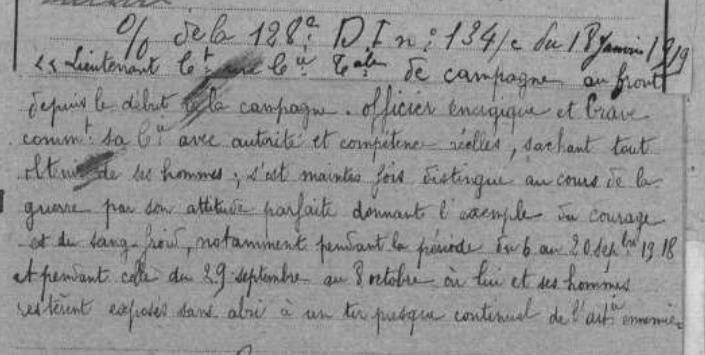 O/ de la 128e D I n: 134/c du 18 Janvier 1919
"Lieutenant Ct une Cie Tale de campagne au front
depuis le début de la campagne. officier énergique et brave
commt sa Cie avec autorité et compétence réelles, sachant tout
obtenir de ses hommes; s'est maintes fois distingué au cours de la
guerre par son attitude parfaite donnant l'exemple du courage
et du sang-froid, notamment pendant la période du 6 au 20 sepbre 1918
et pendant celle du 29 septembre au 8 octobre où lui et ses hommes
restèrent exposés sans abri à un tir presque continuel de l'artie ennemie"